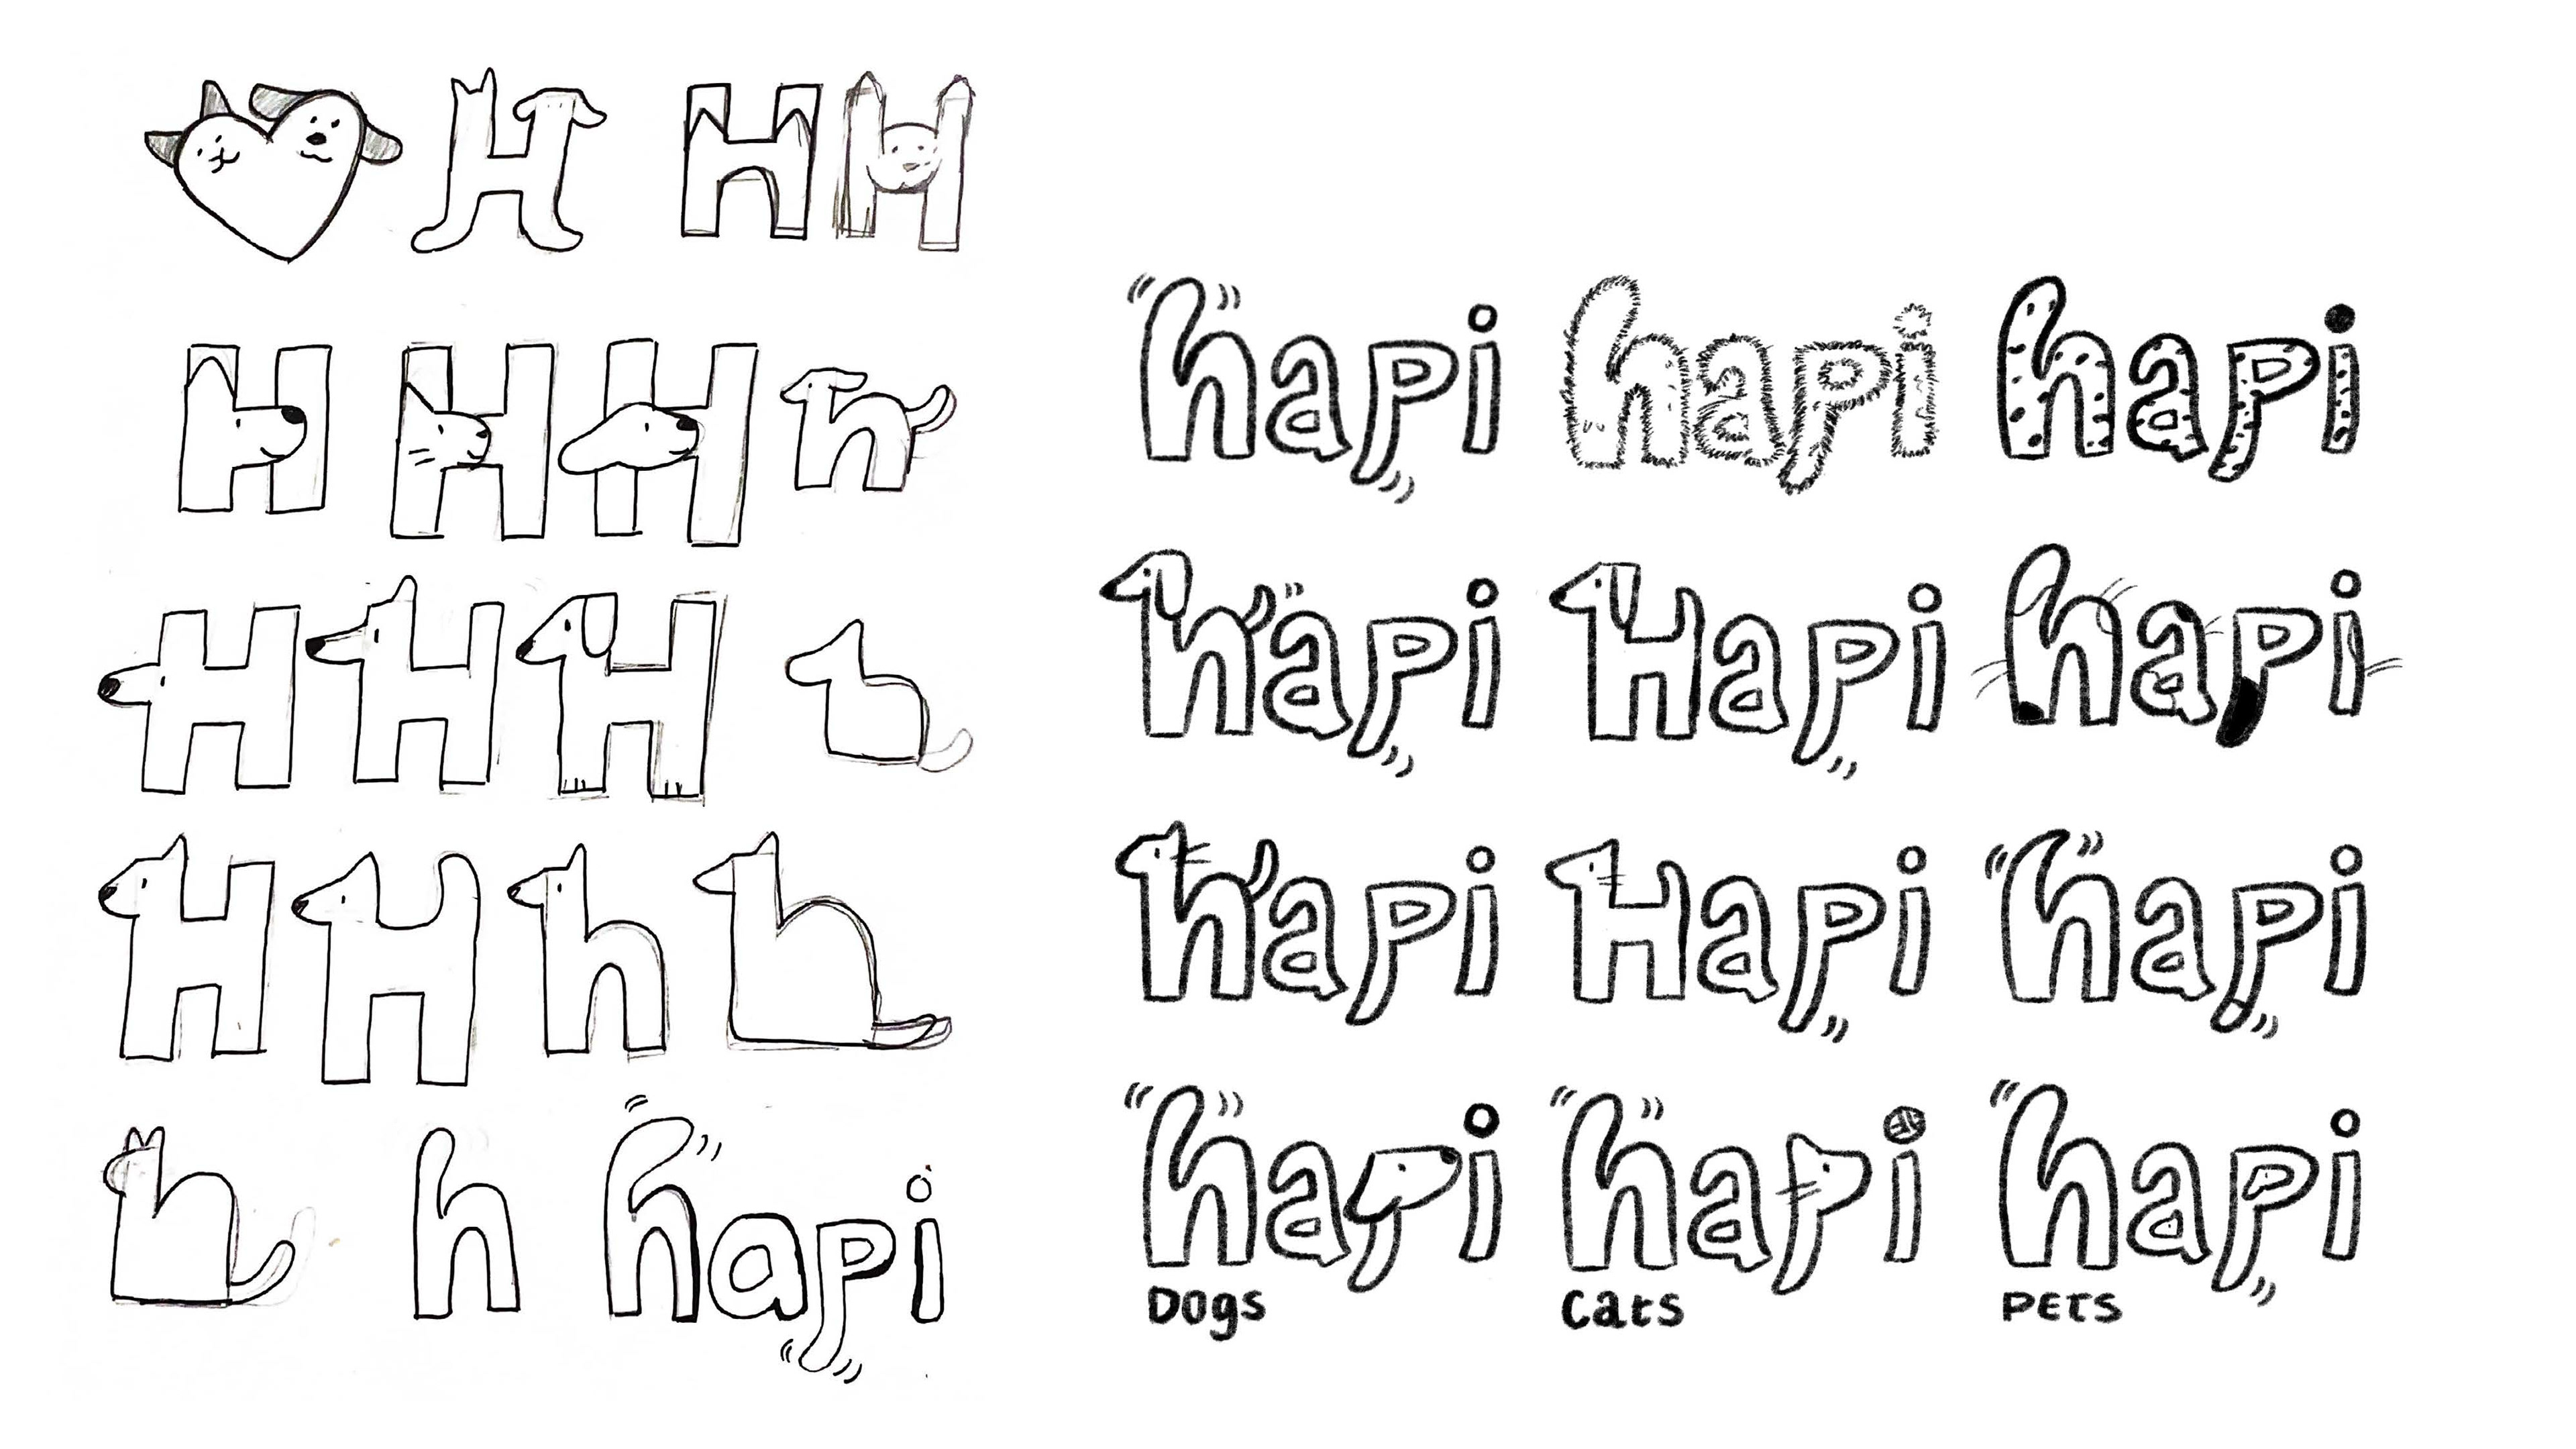 H H H
H H H h
H H H
H H h
h hapi
hapi hapi hapi
hapi Hapi hapi
hapi Hapi hapi
hapi hapi hapi
Dogs Cats PETS